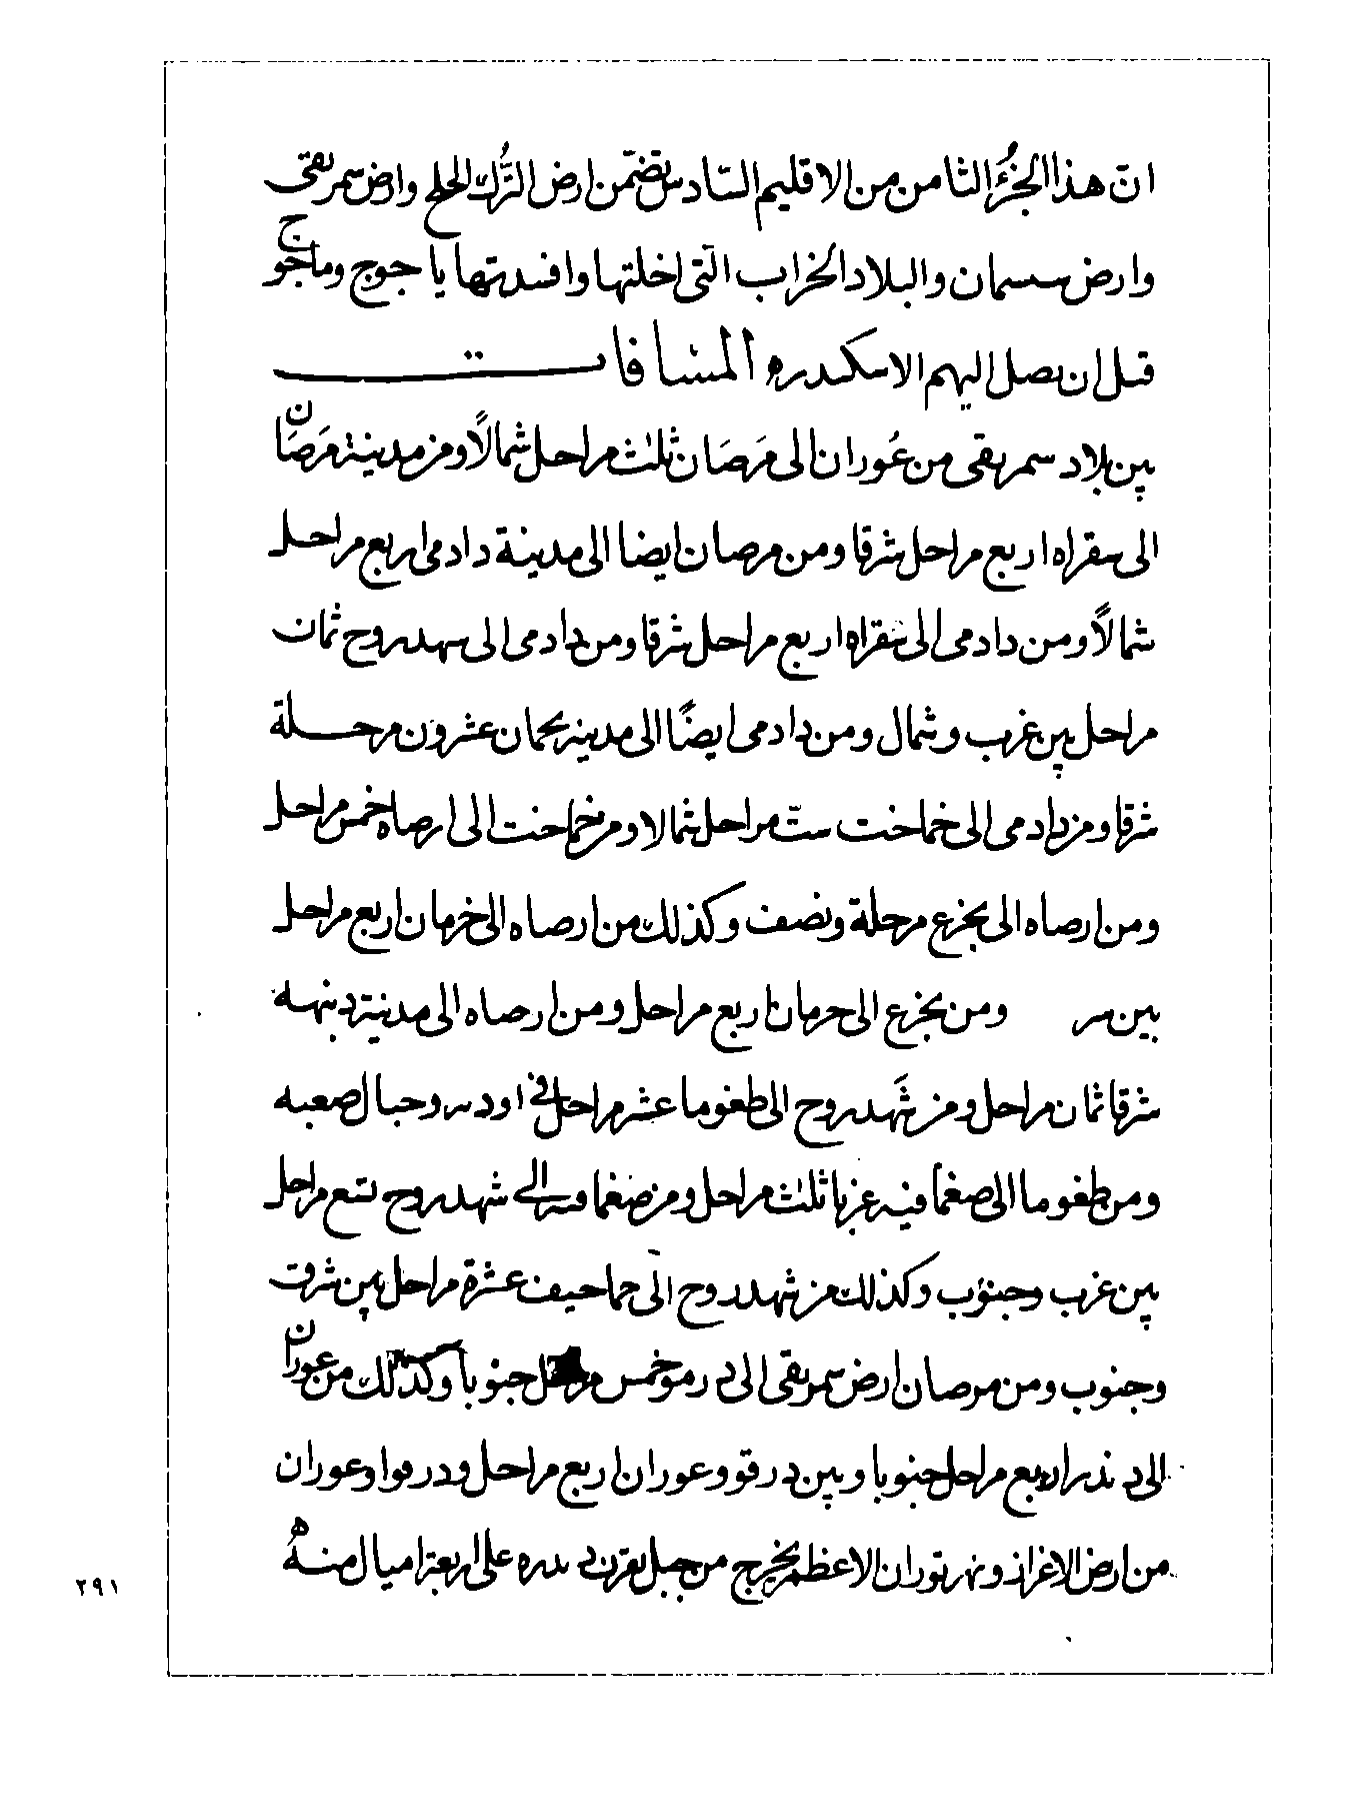 ان هذا الجُزُء الثامن من الاقليم السّادس تضمّن ارض التُّرك الخلج وارض سمريقى
وارض سسمان والبلاد الخراب الّتى اخلتها وافسدتها ياجوج وماجوج
قبل ان يصل اليهم الاسكندره المسافات
بين بلاد سمريقى من عُوران الى مَرصَان ثلث مراحل شمالًا ومن مدينة مَرصَان
الى سقراه اربع مراحل شرقا ومن مرصان ايضا الى مدينة دادمى اربع مراحل
شمالًا ومن دادمى الى سقراه اربع مراحل شرقا ومن دادمى الى سهدروج ثمان
مراحل بين غرب وشمال ومن دادمى ايضًا الى مدينه بحمان عشرون مرحلة
شرقا ومن دادمى الى خماخت ستّ مراحل شمالا ومن خماخت الى ارصاه خمس مراحل
ومن ارصاه الى بجزع مرحلة ونصف وكذلك من ارصاه الى خرمان اربع مراحل
بين ومن بجزع الى حرمان اربع مراحل ومن ارصاه الى مدينة دنبهه
شرقا ثمان مراحل ومن شَهدروج الى طغوما عشر مراحل فى اوديه وجبال صعبه
ومن طغوما الى صغمافيه غربا ثلث مراحل ومن صغمافيه الى شهدروج تسع مراحل
بين غرب وجنوب وكذلك من شهدروج الى جماحيف عشرة مراحل بين شرق
وجنوب ومن مرصان ارض سمريقى الى درمو خمس مراحل جنوبا وكذلك من عوران
الى دندرا اربع مراحل جنوبا وبين درقو وعوران اربع مراحل ودرقوا وعوران
من ارض الاغزاز ونهر توران الاعظم يخرج من جبل على اربعة اميال منهُ
٢٩١